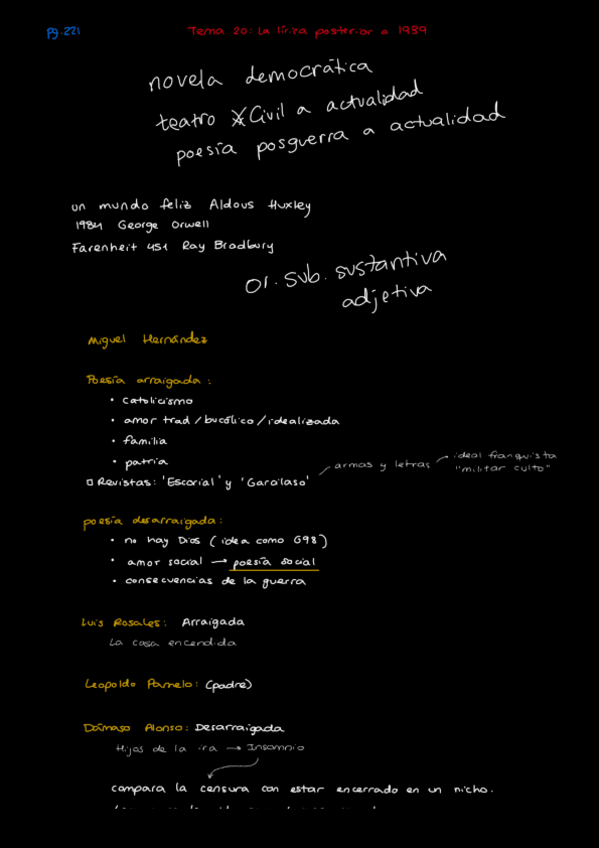 Pg.221
Tema 20: La lírica posterior a 1939
novela democrática
teatro XCivil a actualidad
poesía posguerra a actualidad
un mundo feliz Aldous Huxley
1984 George Orwell
Farenheit 451 Ray Bradbury
or. sub. sustantiva
adjetiva
Miguel Hernández
Poesía arraigada:
• catolicismo
• amor trad / bucólico / idealizada
• familia
• patria
Revistas: 'Escorial' y 'Garcilaso'
armas y letras
ideal franquista
"militar culto"
poesía desarraigada:
• no hay Dios (idea como G98)
• amor social → poesía social
• consecuencias de la guerra
Luis Rosales: Arraigada
La casa encendida
Leopoldo Panelo: (padre)
Dámaso Alonso: Desarraigada
Hijos de la ira → Insomnio
compara la censura con estar encerrado en un nicho.